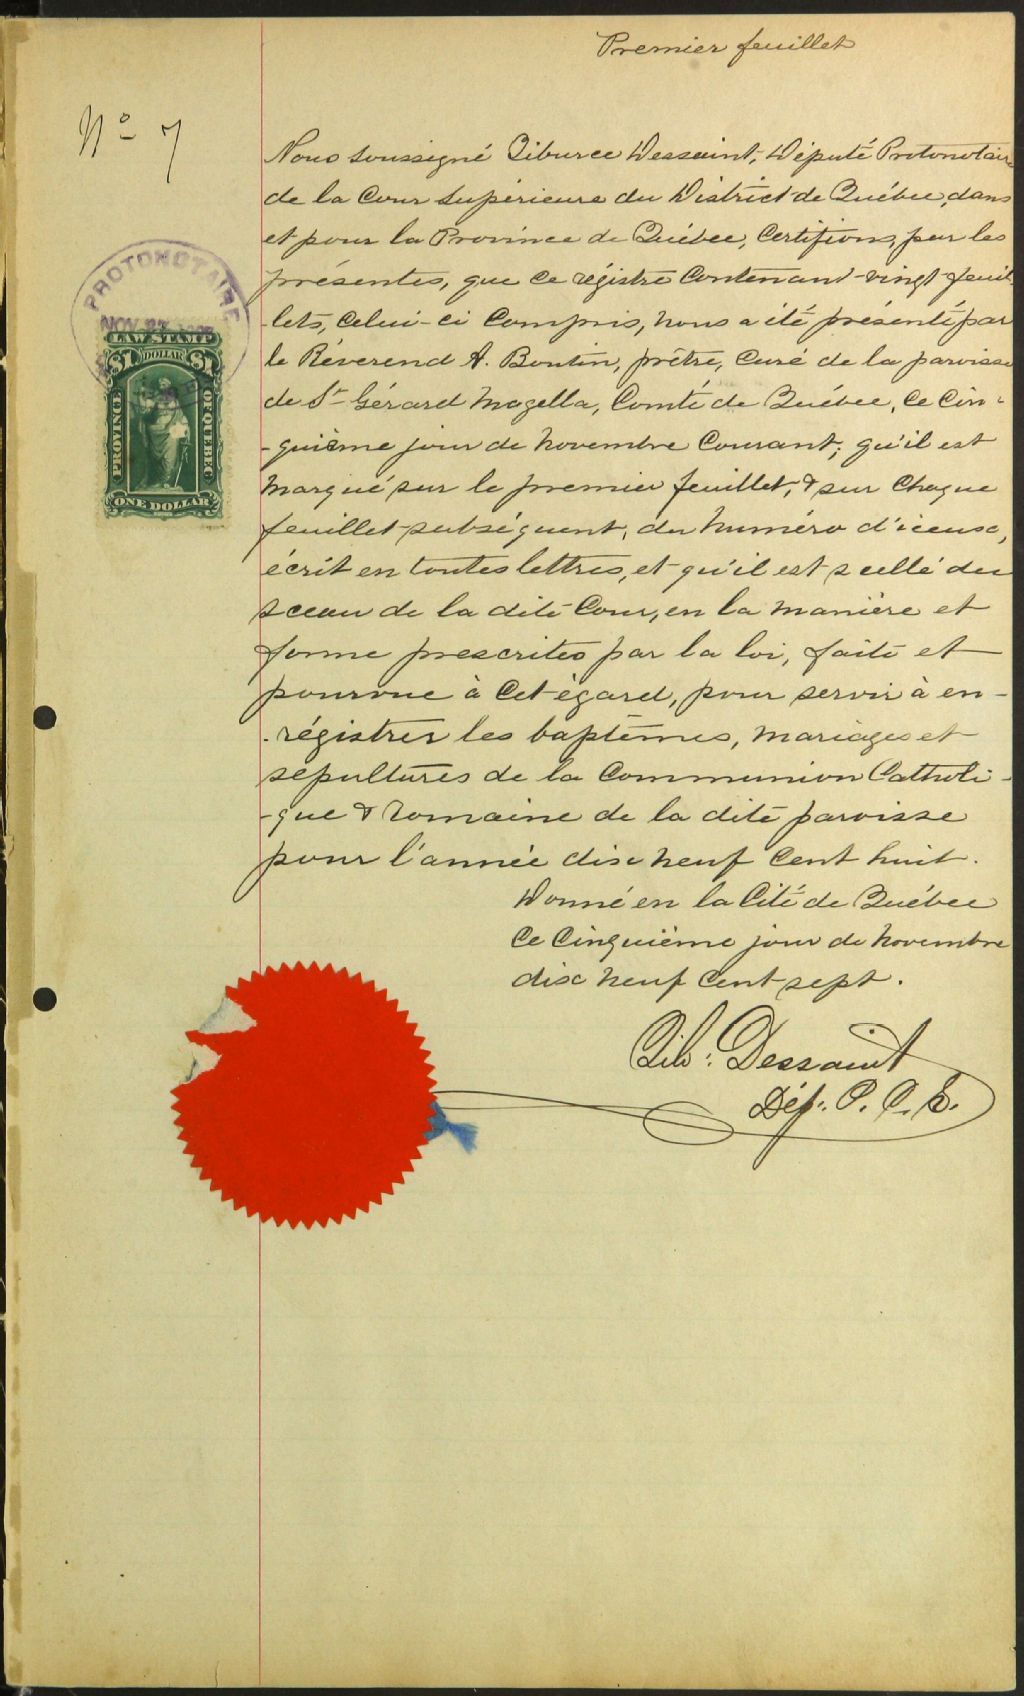 Premier feuillet
No 7
Nous soussigné Tiburce Dessaint, Député Protonotaire
de la Cour Supérieure du District de Québec, dans
et pour la Province de Québec, Certifions, par les
présentes, que ce régistre contenant vingt feuil-
-lets, celui-ci compris, nous a été présenté par
le Révérend A. Boutin, prêtre, curé de la paroisse
de St Gérard Magella, Comté de Québec, ce cin-
-quième jour de novembre courant; qu'il est
marqué sur le premier feuillet, & sur chaque
feuillet subséquent, du numéro d'icelui,
écrit en toutes lettres, et qu'il est scellé du
sceau de la dite Cour, en la manière et
forme prescrites par la loi, faite et
pourvue à cet égard, pour servir à en-
-régistrer les baptêmes, mariages et
sépultures de la Communion Catholi-
-que & romaine de la dite paroisse
pour l'année dix neuf cent huit.
Donné en la Cité de Québec
ce cinquième jour de novembre
dix neuf cent sept.
Tib: Dessaint
Dép. P. C. S.
PROTONOTAIRE
NOV 27
LAW STAMP
$1 DOLLAR $1
PROVINCE
OF QUEBEC
ONE DOLLAR